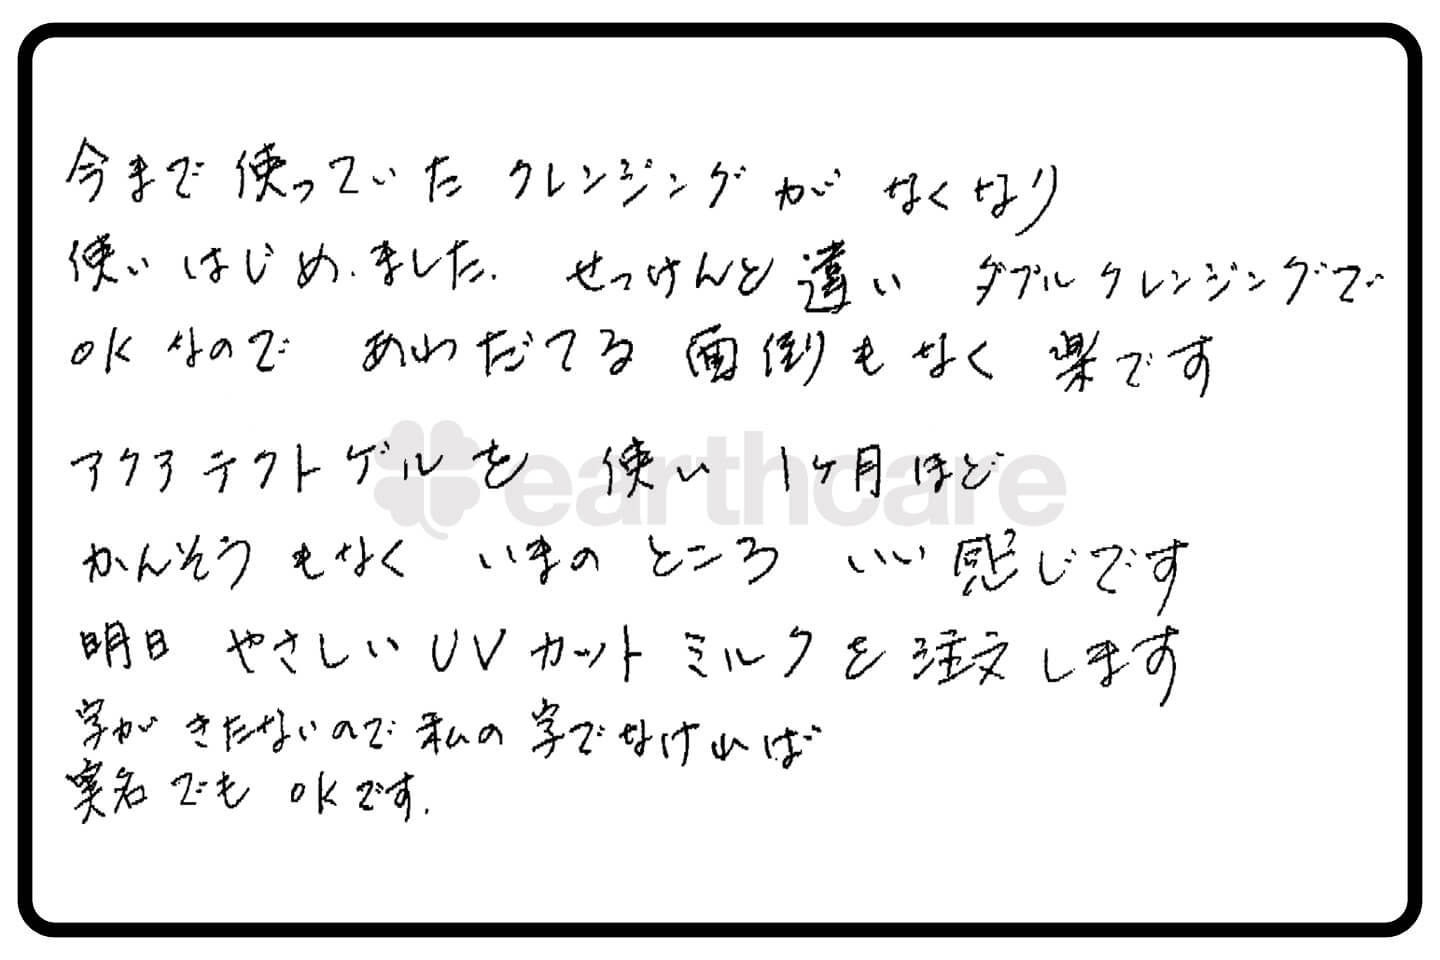 今まで使っていた クレンジングが なくなり
使い はじめました. せっけんと違い ダブルクレンジングで
OKなので あわだてる 面倒もなく 楽です
アクアテクトゲルを 使い 1ヶ月ほど
かんそうもなく いまの ところ いい感じです
明日 やさしいUVカットミルクを注文します
字が きたないので私の字でなければ
実名でも OKです.
earthcare